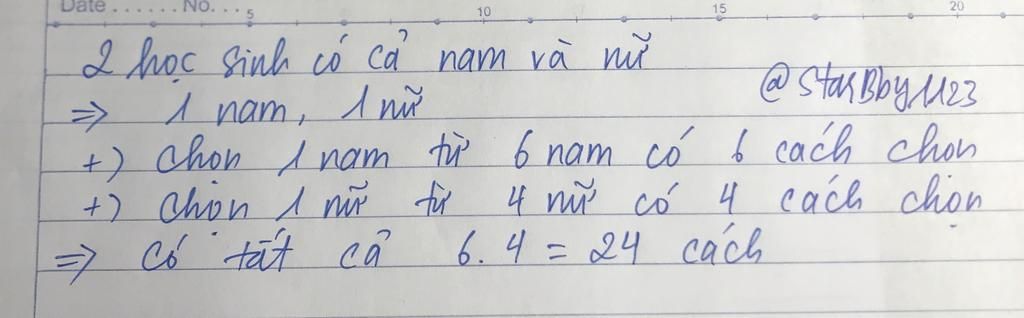 Date ...... No. ...
5 10 15 20
2 học sinh có cả nam và nữ
⇒ 1 nam, 1 nữ
@StarBby1123
+) chọn 1 nam từ 6 nam có 6 cách chon
+) chọn 1 nữ từ 4 nữ có 4 cách chọn
⇒ có tất cả 6.4 = 24 cách